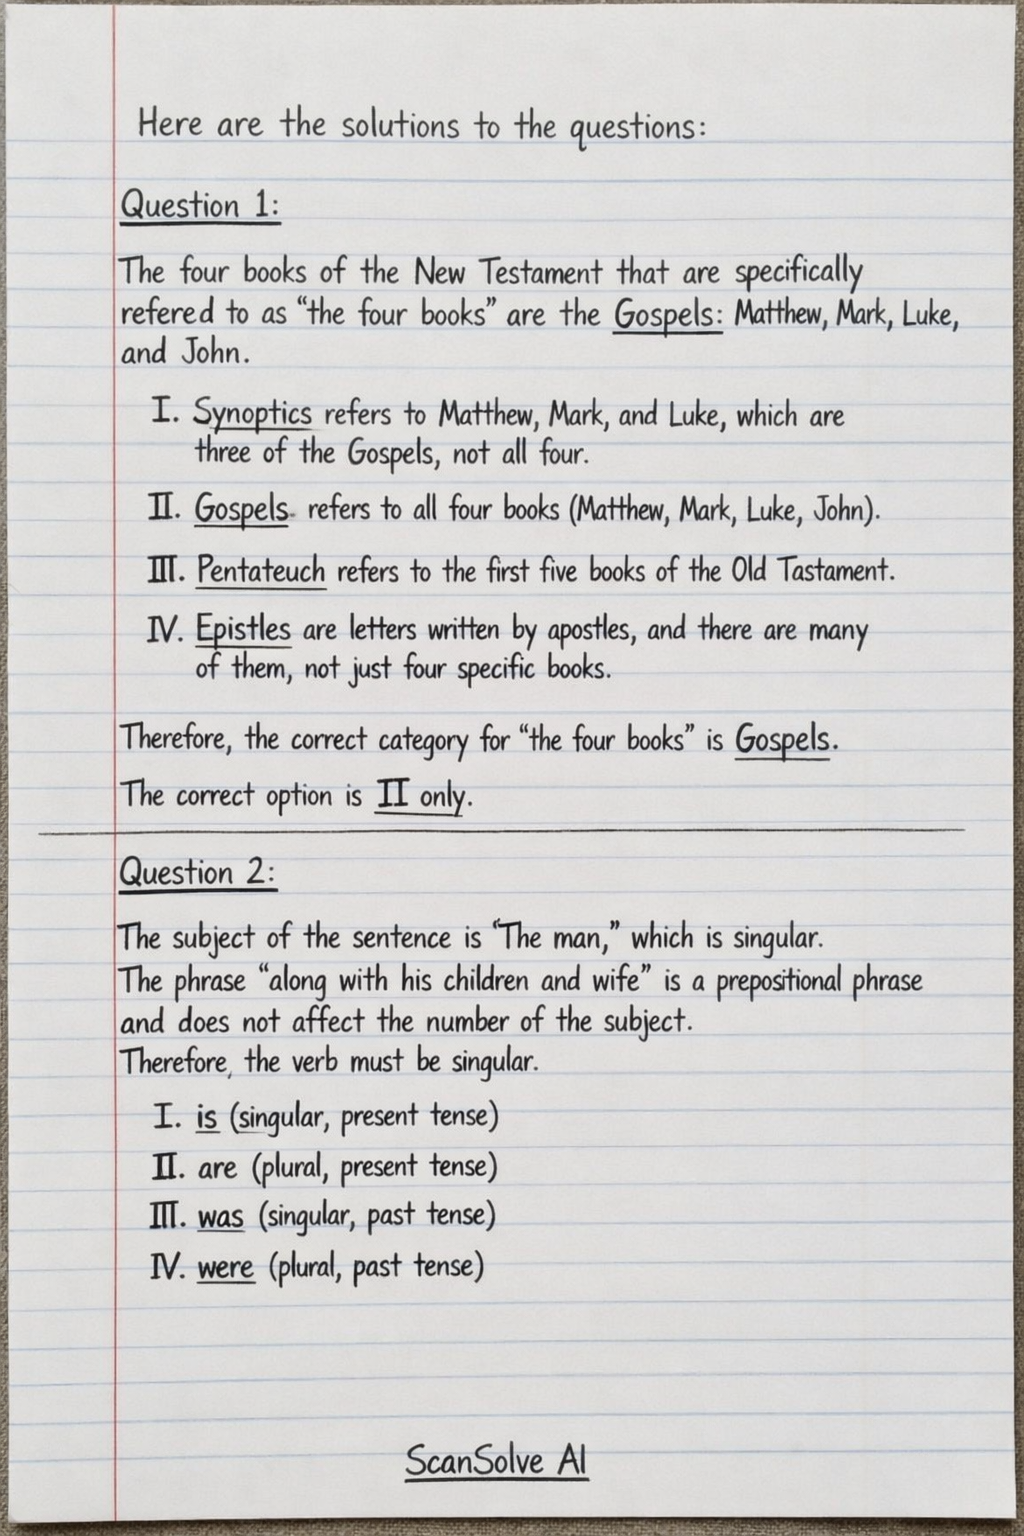 Here are the solutions to the questions:
Question 1:
The four books of the New Testament that are specifically
refered to as “the four books” are the Gospels: Matthew, Mark, Luke,
and John.
I. Synoptics refers to Matthew, Mark, and Luke, which are
three of the Gospels, not all four.
II. Gospels refers to all four books (Matthew, Mark, Luke, John).
III. Pentateuch refers to the first five books of the Old Tastament.
IV. Epistles are letters written by apostles, and there are many
of them, not just four specific books.
Therefore, the correct category for “the four books” is Gospels.
The correct option is II only.
Question 2:
The subject of the sentence is “The man,” which is singular.
The phrase “along with his children and wife” is a prepositional phrase
and does not affect the number of the subject.
Therefore, the verb must be singular.
I. is (singular, present tense)
II. are (plural, present tense)
III. was (singular, past tense)
IV. were (plural, past tense)
ScanSolve AI